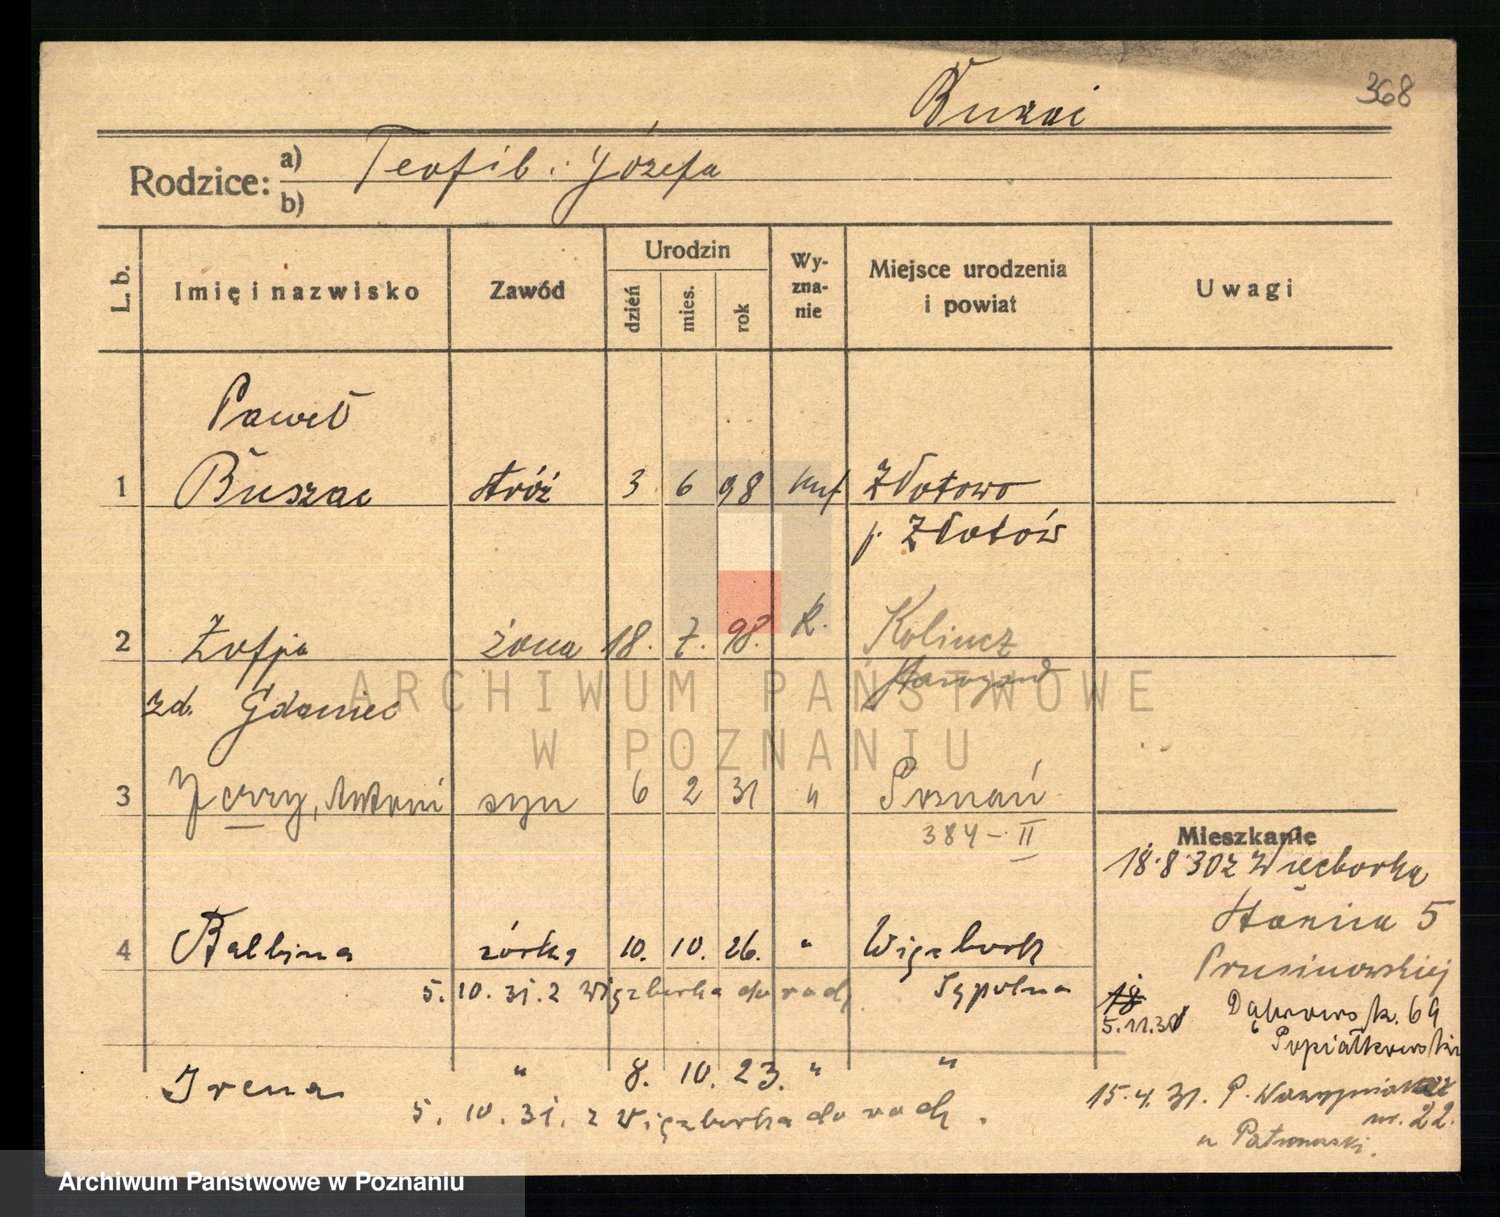 368
Buszac
Rodzice: a) Teofil i Józefa
b)
L. b.
Imię i nazwisko
Zawód
Urodzin
dzień
mies.
rok
Wy-
zna-
nie
Miejsce urodzenia
i powiat
Uwagi
Paweł
1 Buszac stróż 3 6 98 Złotowo
p. Złotów
2 Zofja żona 18. 7. 98. k. Kolincz
zd. Gdaniec Starogard
3 Jerzy, Antoni syn 6 2 31 " Poznań
384 - II
Mieszkanie
18.8.30 z Więcborka
5
Prusinowskiej
4 Balbina córka 10. 10. 26. " Więcbork
5. 10. 31. z Więcborka do rodz. Sępolna
18
5.11.30 Dąbrowsk. 69
Popiałkowski
Irena " 8. 10. 23. " "
5. 10. 31. z Więcborka do rodz.
15.4.31. P. Wawrzyniaka
nr. 22.
u
ARCHIWUM PAŃSTWOWE
W POZNANIU
Archiwum Państwowe w Poznaniu